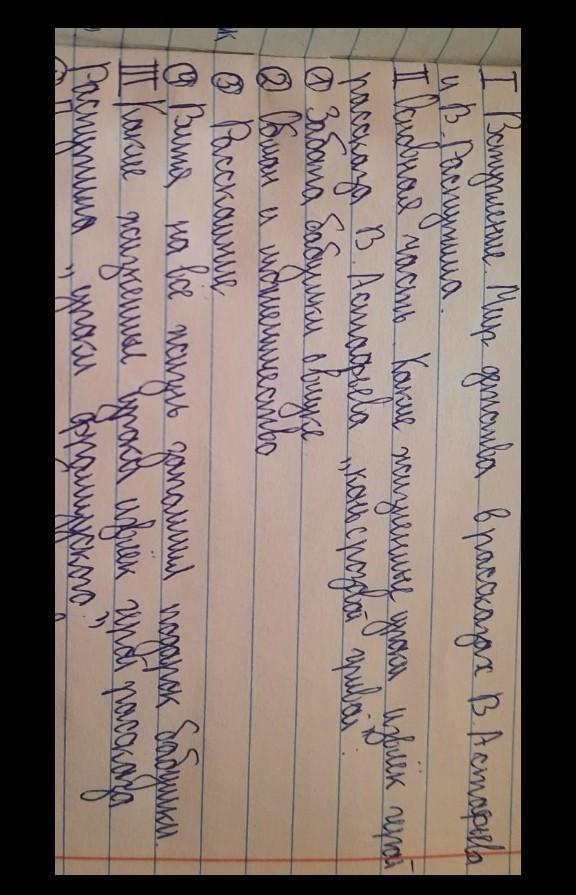 I Вступление. Мир детства в рассказах В. Астафьева
и В. Распутина.
II Основная часть. Какие жизненные уроки извлёк герой
рассказа В. Астафьева „конь с розовой гривой".
① Забота бабушки о внуке
② Обман и мошенничество
③ Раскаяние
④ Витя на всё жизнь запомнил подарок бабушки.
III Какие жизненные уроки извлёк герой рассказа
Распутина „уроки французского"